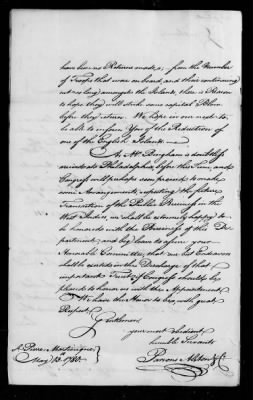 have been no Returns made, from the Number
of Troops that were on board, and their continuing
not so long amongst the Islands, there is Reason
to hope they will strike some capital Blow
before they return. We hope in our next to
be able to inform You of the Reduction of
one of the English Islands.
As Mr. Bingham is doubtless
arrived at Philadelphia before this Time, and
Congress will perhaps soon proceed to make
some Arrangements, respecting the future
Transaction of the Public Business in the
West Indies, we shall be extremely happy to
be honored with the Business of this De-
partment, and beg leave to assure your
Honorable Committee, that our best Endeavors
shall be exerted in the Discharge of that
important Trust, if Congress should be
pleased to honor us with the Appointment.
We have the Honor to be, with great
Respect,
Gentlemen,
your most obedient
humble Servants
Parsons Alston & Co
St. Pierre Martinique
May 13th 1780